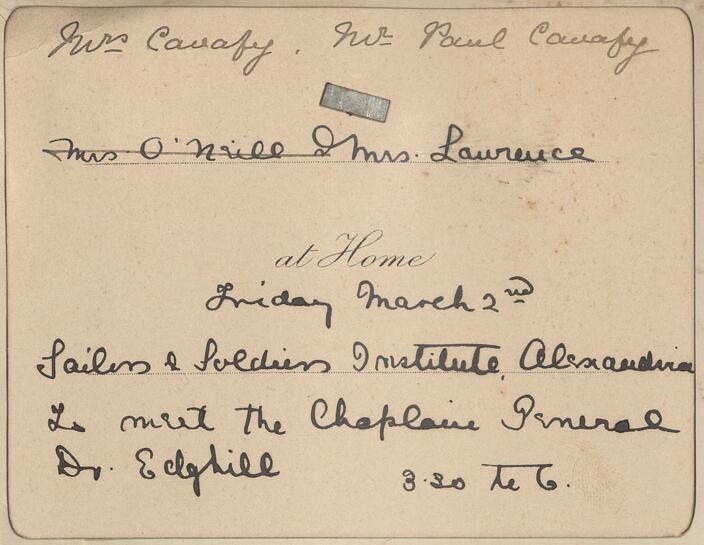 Mrs Cavafy. Mr Paul Cavafy
Mrs. O'Neill & Mrs. Lawrence
at Home
Friday March 2nd
Sailors & Soldiers Institute, Alexandria
To meet the Chaplain General
Dr. Edghill 3.30 to 6.